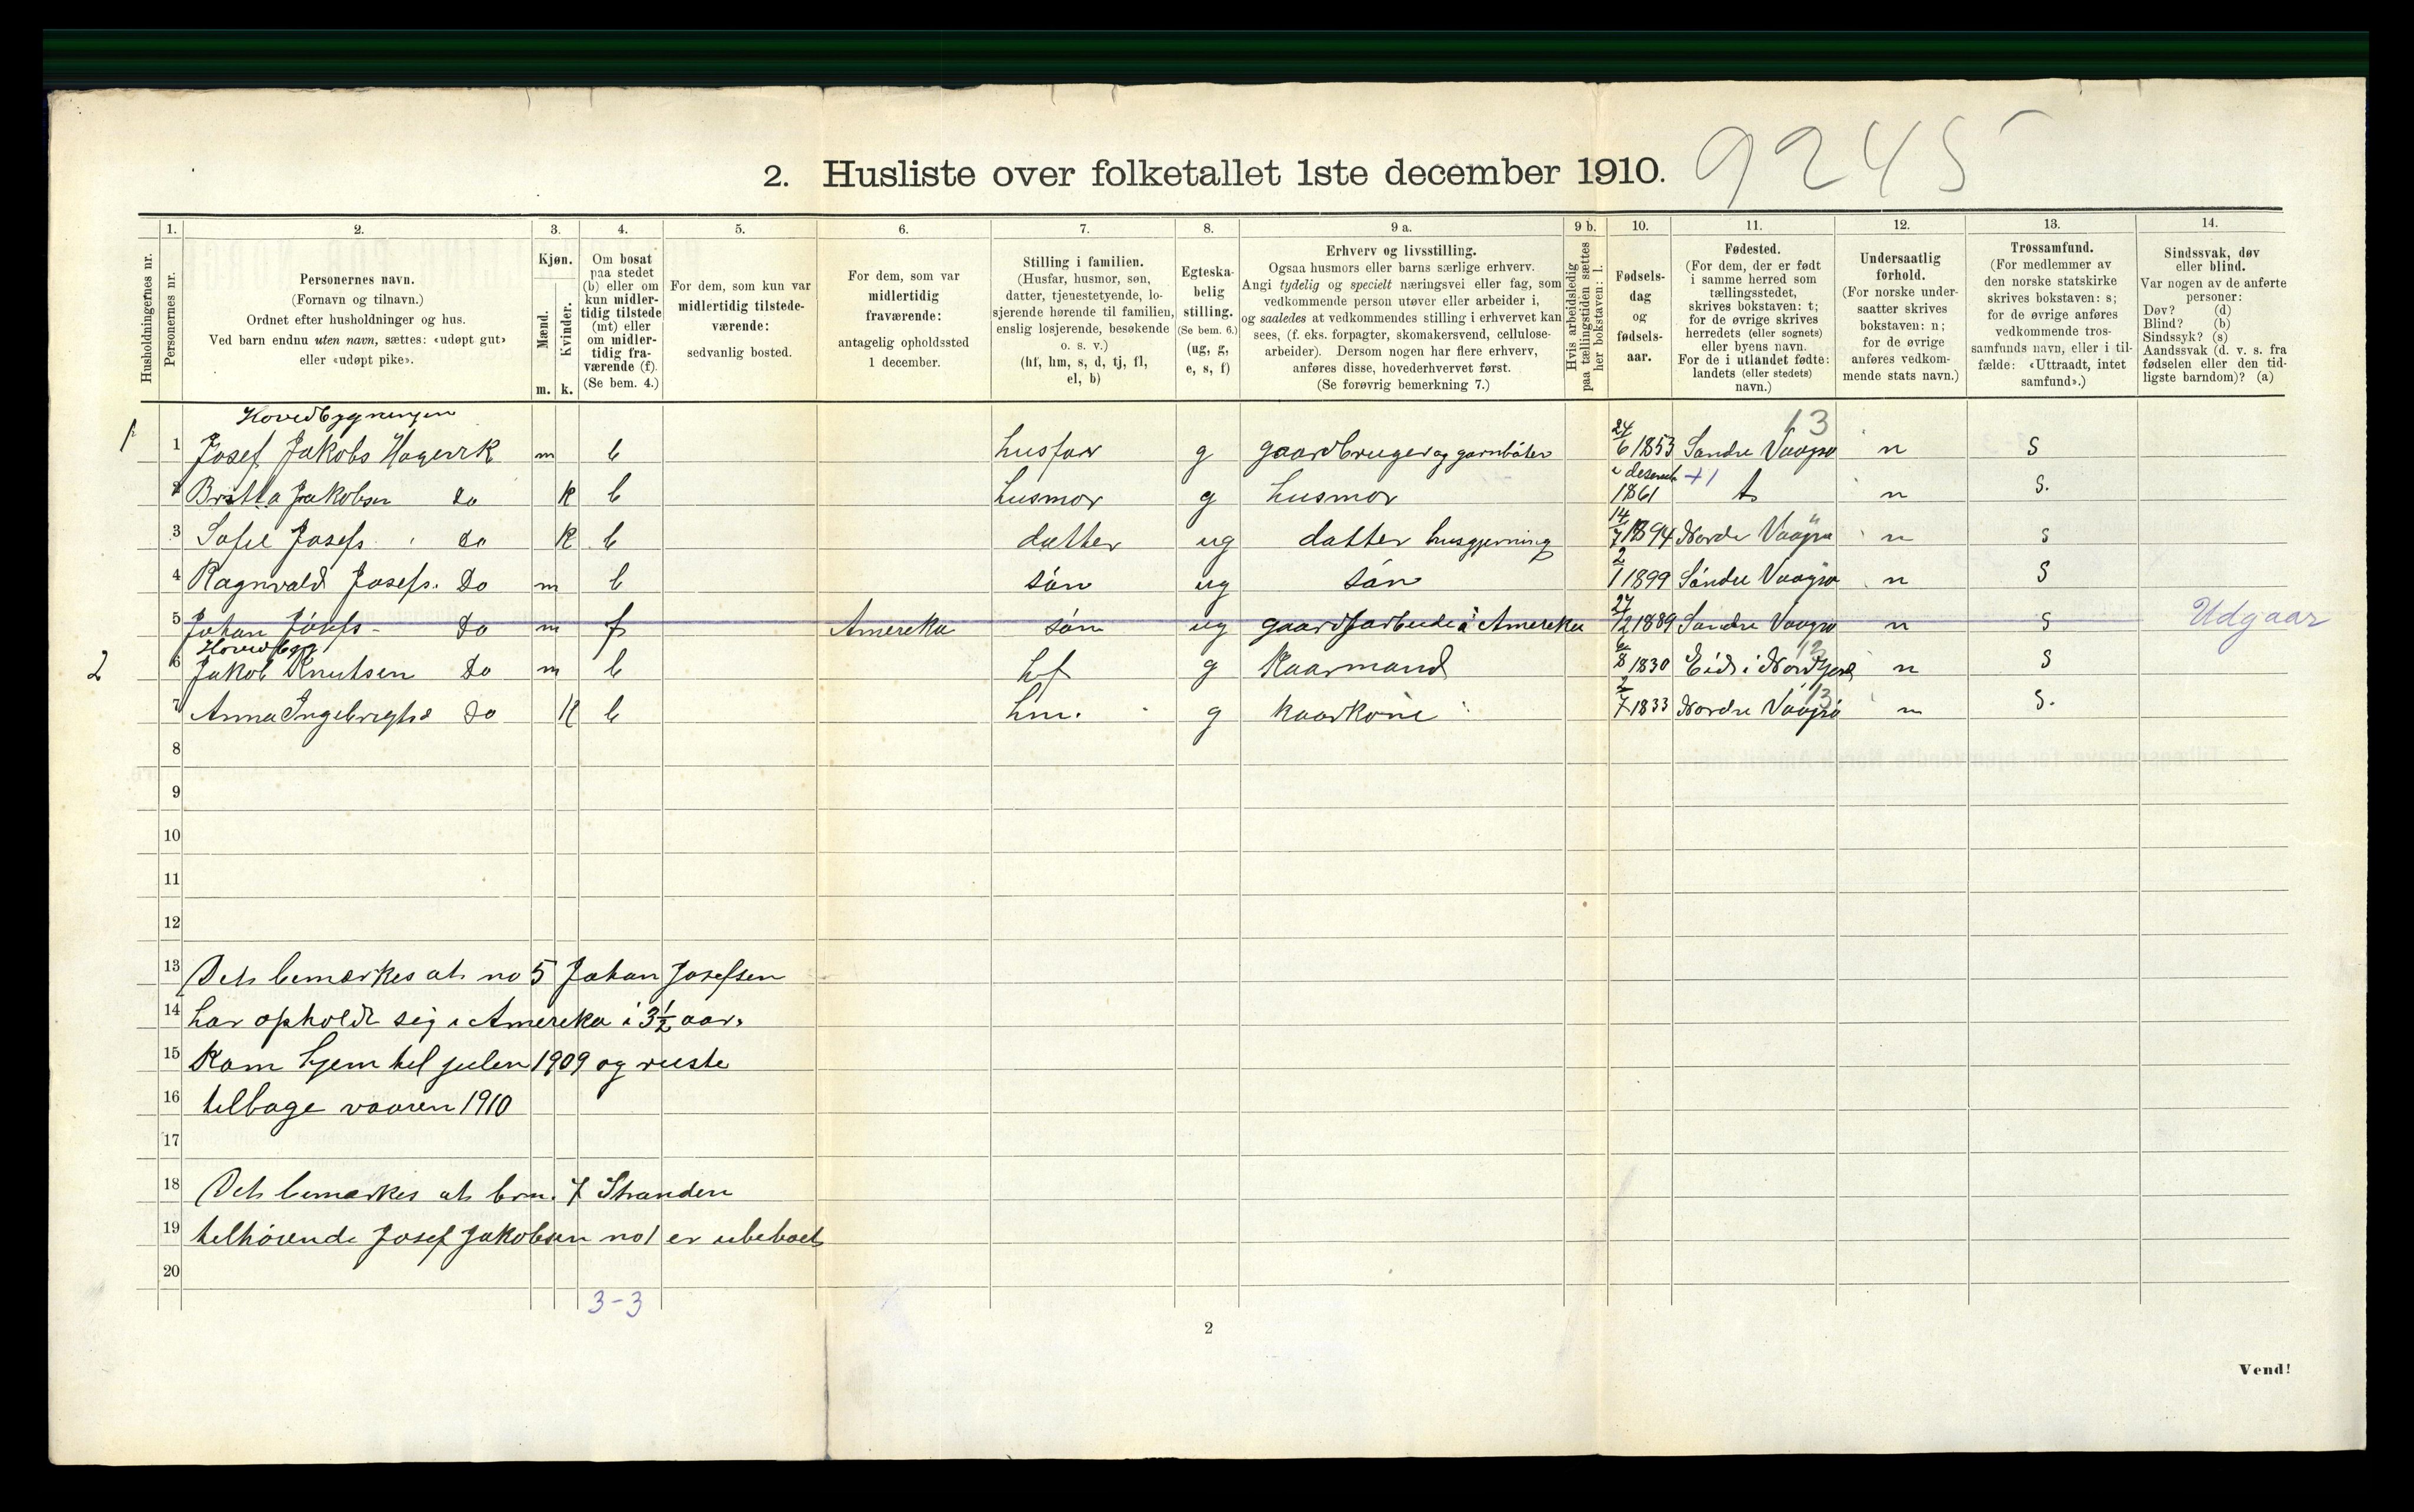 9245
2. Husliste over folketallet 1ste december 1910.
Husholdningernes nr.
1. Personernes nr.
2. Personernes navn. (Fornavn og tilnavn.) Ordnet efter husholdninger og hus. Ved barn endnu uten navn, sættes: «udøpt gut» eller «udøpt pike».
3. Kjøn. Mænd. m. Kvinder. k.
4. Om bosat paa stedet (b) eller om kun midlertidig tilstede (mt) eller om midlertidig fraværende (f). (Se bem. 4.)
5. For dem, som kun var midlertidig tilstedeværende: sedvanlig bosted.
6. For dem, som var midlertidig fraværende: antagelig opholdssted 1 december.
7. Stilling i familien. (Husfar, husmor, søn, datter, tjenestetyende, losjerende hørende til familien, enslig losjerende, besøkende o. s. v.) (hf, hm, s, d, tj, fl, el, b)
8. Egteskabelig stilling. (Se bem. 6.) (ug, g, e, s, f)
9 a. Erhverv og livsstilling. Ogsaa husmors eller barns særlige erhverv. Angi tydelig og specielt næringsvei eller fag, som vedkommende person utøver eller arbeider i, og saaledes at vedkommendes stilling i erhvervet kan sees, (f. eks. forpagter, skomakersvend, cellulosearbeider). Dersom nogen har flere erhverv, anføres disse, hovederhvervet først. (Se forøvrig bemerkning 7.)
9 b. Hvis arbeidsledig paa tællingstiden sættes her bokstaven: l.
10. Fødselsdag og fødselsaar.
11. Fødested. (For dem, der er født i samme herred som tællingsstedet, skrives bokstaven: t; for de øvrige skrives herredets (eller sognets) eller byens navn. For de i utlandet fødte: landets (eller stedets) navn.)
12. Undersaatlig forhold. (For norske undersaatter skrives bokstaven: n; for de øvrige anføres vedkommende stats navn.)
13. Trossamfund. (For medlemmer av den norske statskirke skrives bokstaven: s; for de øvrige anføres vedkommende trossamfunds navn, eller i tilfælde: «Uttraadt, intet samfund».)
14. Sindssvak, døv eller blind. Var nogen av de anførte personer: Døv? (d) Blind? (b) Sindssyk? (s) Aandssvak (d. v. s. fra fødselen eller den tidligste barndom)? (a)
Hovedbygningen 13
1 1 Josef Jakobs Hagevik m b husfar g gaardbruger og 24/6 1853 Søndre Vaagsø n s
2 Britta Jakobsen do k b husmor g husmor i desemb 1861 +1 t n s.
3 Sofie Josefs. do k b datter ug datter husgjerning 14/7 1894 Nordre Vaagsø n s
4 Ragnvald Josefs. do m b søn ug søn 2/1 1899 Søndre Vaagsø n s
5 Johan Josefs- do m f Amereka søn ug gaardsarbeide i Amereka 27/2 1889 Søndre Vaagsø n s Udgaar
Hovedbyg 13
2 6 Jakob Knutsen do m b hf g Kaarmand 6/8 1830 Eid i Nordfjord n s
7 Anna Ingebrigts do k b hm. g kaarkone 2/7 1833 Nordre Vaagsø 13 n s.
8
9
10
11
12
13 Det bemærkes at no 5 Johan Josefsen
14 har opholdt sig i Amereka i 3½ aar.
15 Kom hjem tel julen 1909 og reiste
16 telbage vaaren 1910
17
18 Det bemærkes at brn. 7 Stranden
19 telhørende Josef Jakobsen no 1 er ubeboet
20
3-3
2
Vend!